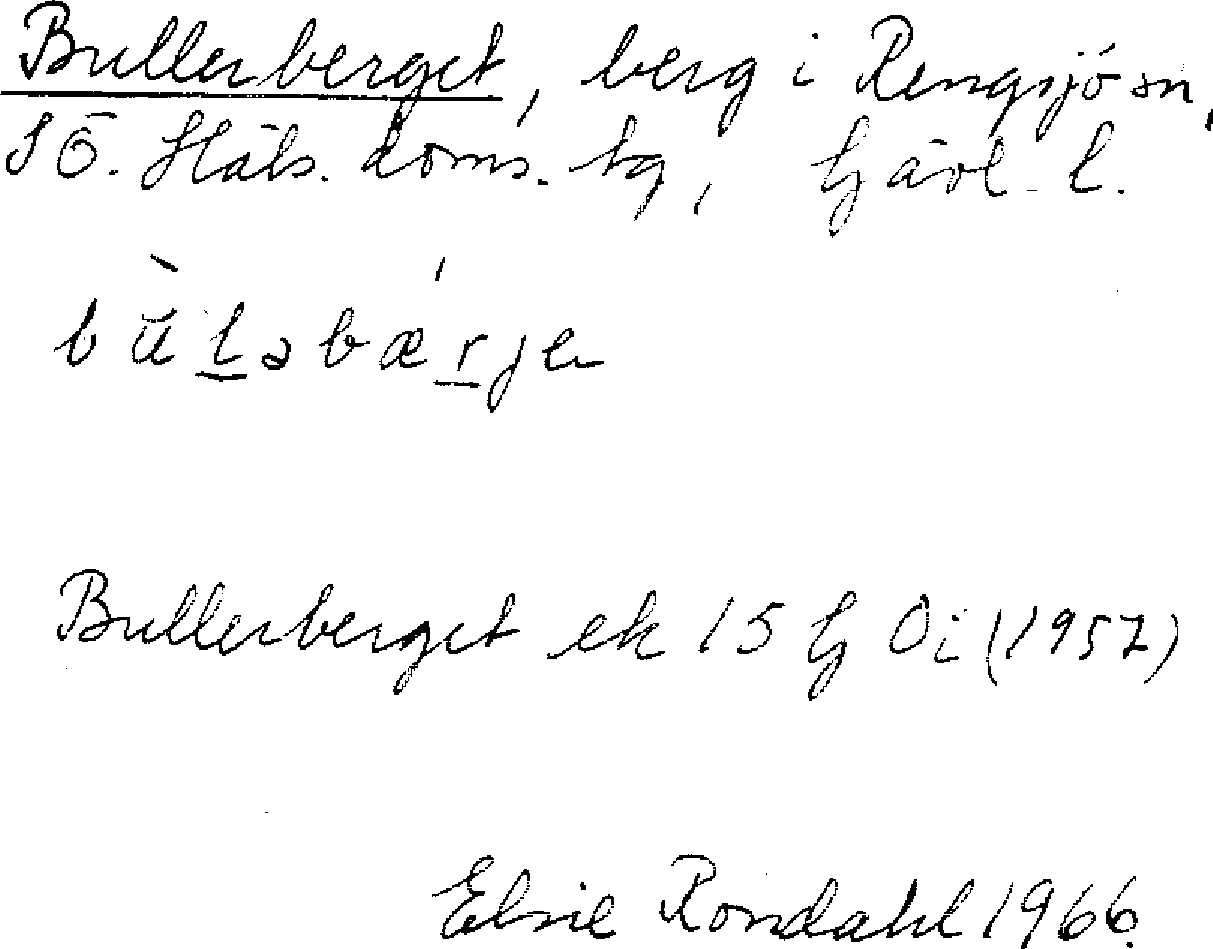 Bullerberget, berg i Rengsjö sn,
SÖ. Häls. doms. tg, Gävl. l.
bùḻəbǽṟjen
Bullerberget ek 15 G 0i (1957)
Elsie Rondahl 1966.